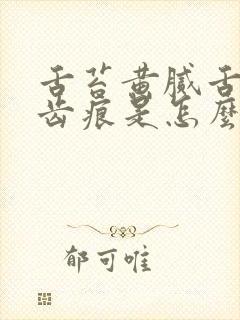 舌苔黄腻舌
齿痕是怎麽
郁可唯